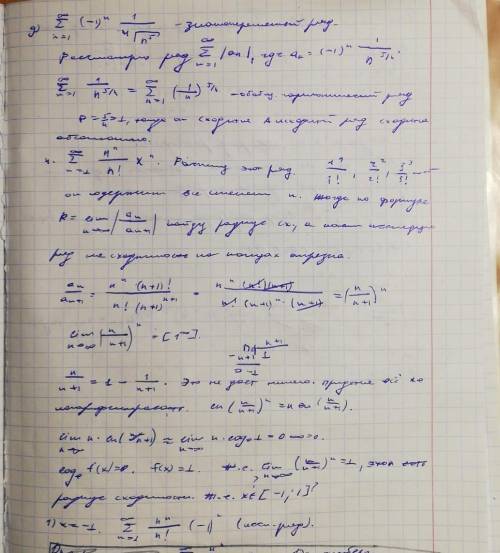 g) \sum_{n=1}^{\infty} (-1)^n \frac{1}{\sqrt[4]{n^5}} - знакопеременный ряд.
Рассмотрю ряд \sum_{n=1}^{\infty} |a_n|, где a_n = (-1)^n \frac{1}{n^{5/4}}.
\sum_{n=1}^{\infty} \frac{1}{n^{5/4}} = \sum_{n=1}^{\infty} (\frac{1}{n})^{5/4} - обобщ. гармонический ряд
p = \frac{5}{4} > 1, тогда он сходится и исходный ряд сходится
абсолютно.
4. \sum_{n=1}^{\infty} \frac{n^n}{n!} x^n. этот ряд. \frac{1^1}{1!}, \frac{2^2}{2!}, \frac{3^3}{3!}
он содержит все степени x. тогда по формуле
R = \lim_{n \to \infty} |\frac{a_n}{a_{n+1}}| найду радиус сх., а потом исследую
ряд на сходимость на концах отрезка.
\frac{a_n}{a_{n+1}} = \frac{n^n (n+1)!}{n! (n+1)^{n+1}} = \frac{n^n (n!)(n+1)}{n! (n+1)^n \cdot (n+1)} = (\frac{n}{n+1})^n
\lim_{n \to \infty} (\frac{n}{n+1})^n = [1^\infty].
\frac{n}{n+1} = 1 - \frac{1}{n+1}. Это не даёт ничего. придётся всё
логарифмировать. \ln(\frac{n}{n+1})^n = n \ln(\frac{n}{n+1}).
\lim_{n \to \infty} n \cdot \ln(\frac{n}{n+1}) = \lim_{n \to \infty} n \cdot \log_e 1 = 0 \cdot \infty = 0.
\log_e f(x) = 0. f(x) = 1. т.е. \lim_{n \to \infty} (\frac{n}{n+1})^n = 1, этот
радиус сходимости. т.е. x \in [-1; 1]?
1) x = -1. \sum_{n=1}^{\infty} \frac{n^n}{n!} (-1)^n (иссл. ряд).